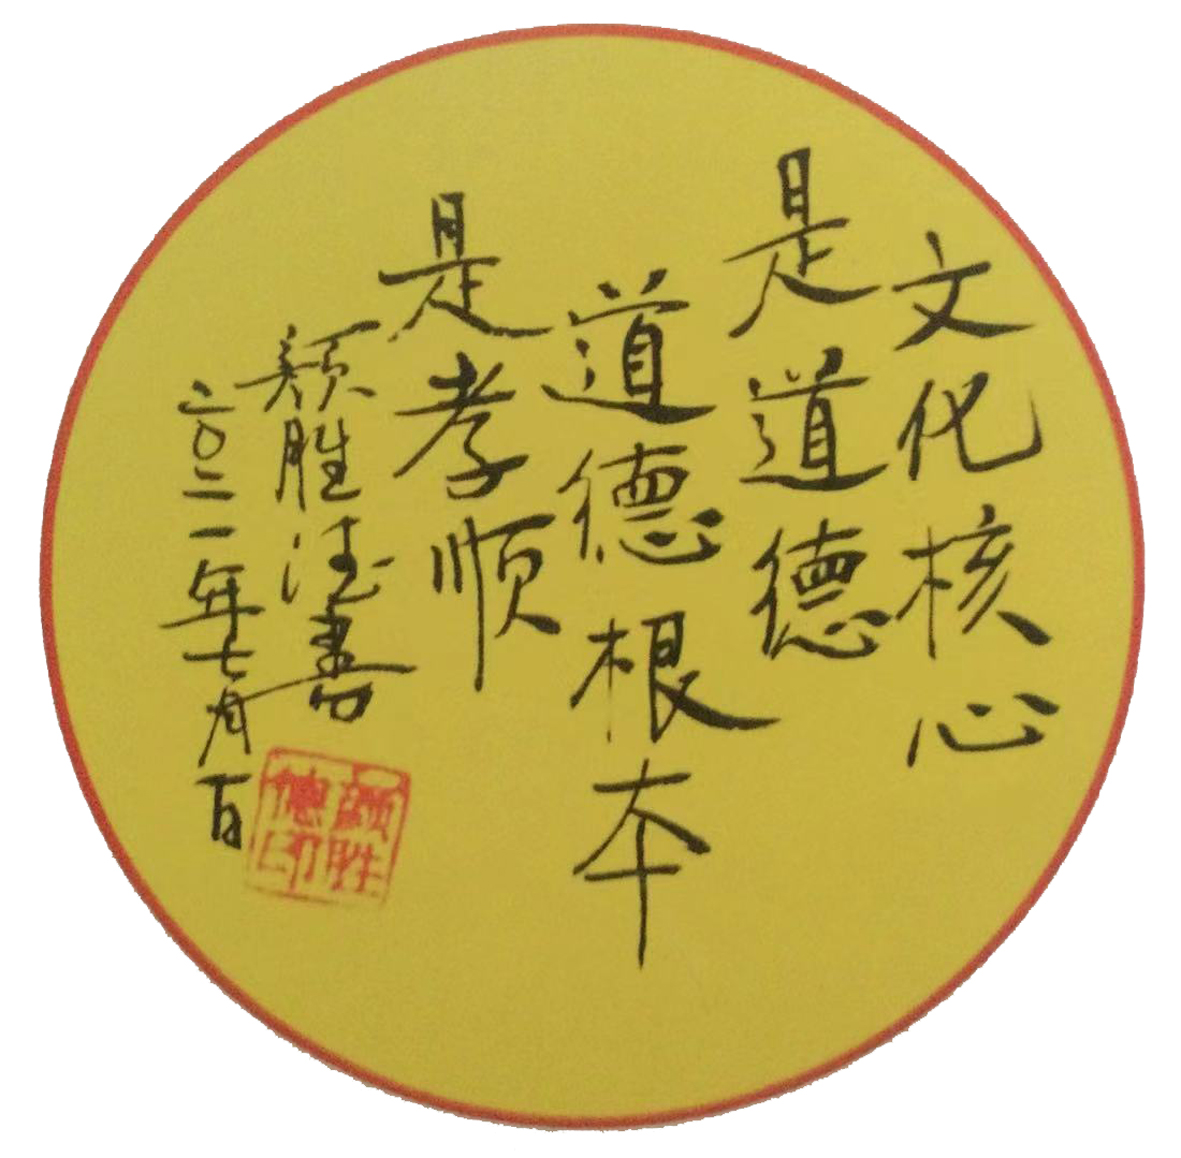 文化核心
是道德
道德根本
是孝顺
颜胜德书
二〇二一年七月一日
颜胜德印